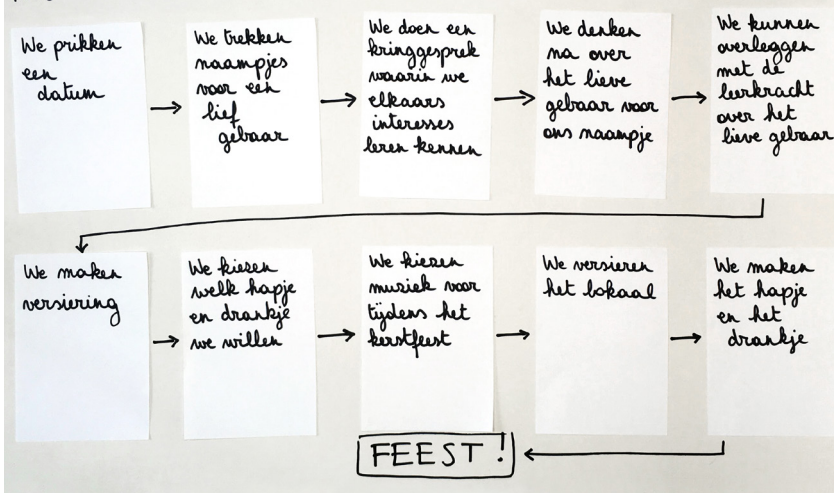 We prikken
een
datum
We trekken
naampjes
voor een
lief
gebaar
We doen een
kringgesprek
waarin we
elkaars
interesses
leren kennen
We denken
na over
het lieve
gebaar voor
ons naampje
We kunnen
overleggen
met de
leerkracht
over het
lieve gebaar
We maken
versiering
We kiezen
welk hapje
en drankje
we willen
We kiezen
muziek voor
tijdens het
kerstfeest
We versieren
het lokaal
We maken
het hapje
en het
drankje
FEEST!